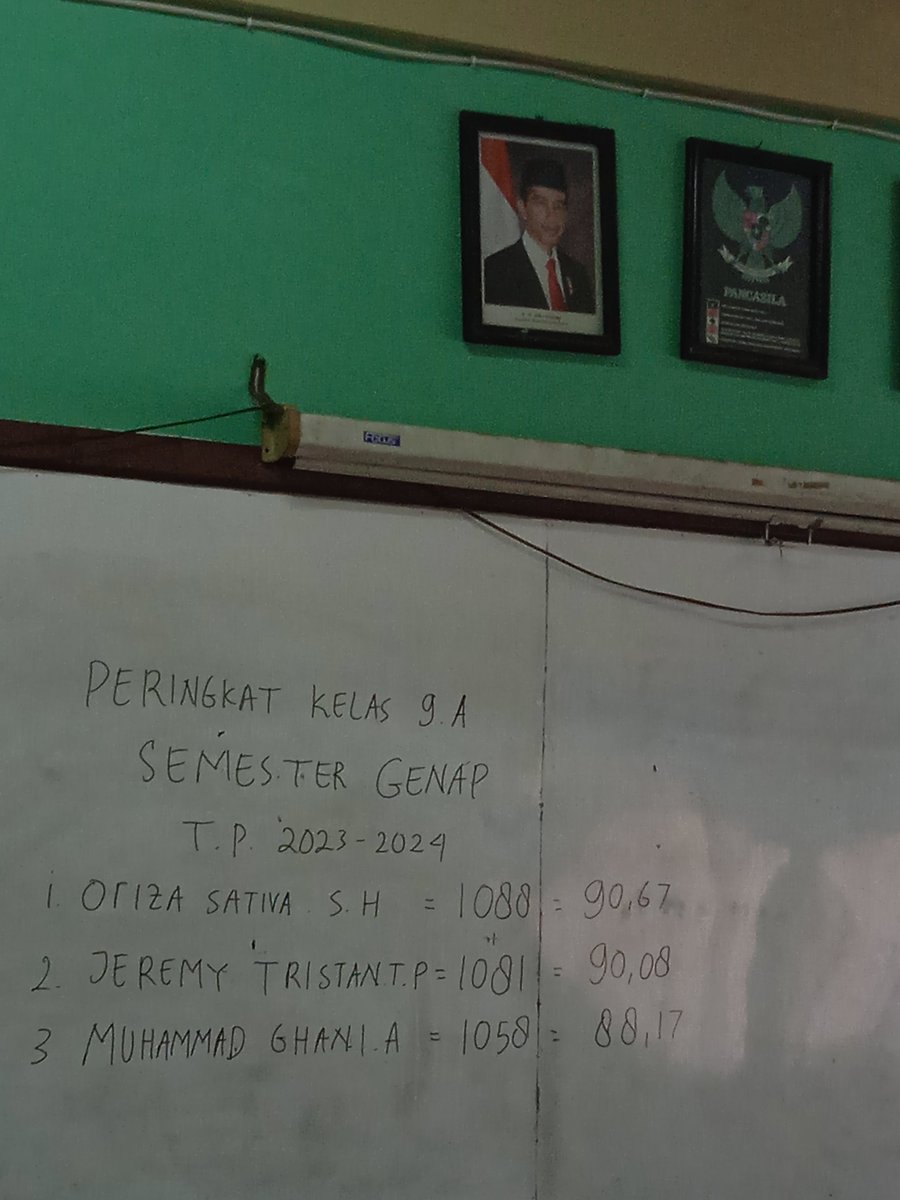 PANCASILA
FOCUS
PERINGKAT KELAS 9.A
SEMESTER GENAP
T.P. 2023-2024
1. ORIZA SATIVA S.H = 1088 = 90,67
2. JEREMY TRISTAN.T.P = 1081 = 90,08
3 MUHAMMAD GHANI.A = 1058 = 88,17